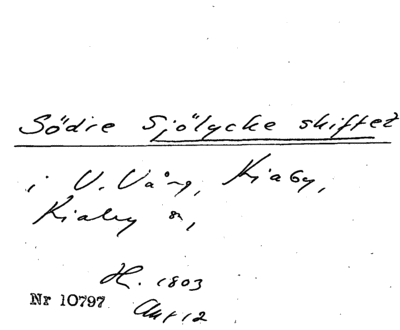 Södre Sjölycke skiftet
i V. Vång, Kiaby,
Kiaby sn,
H. 1803
Nr 10797
Akt 12